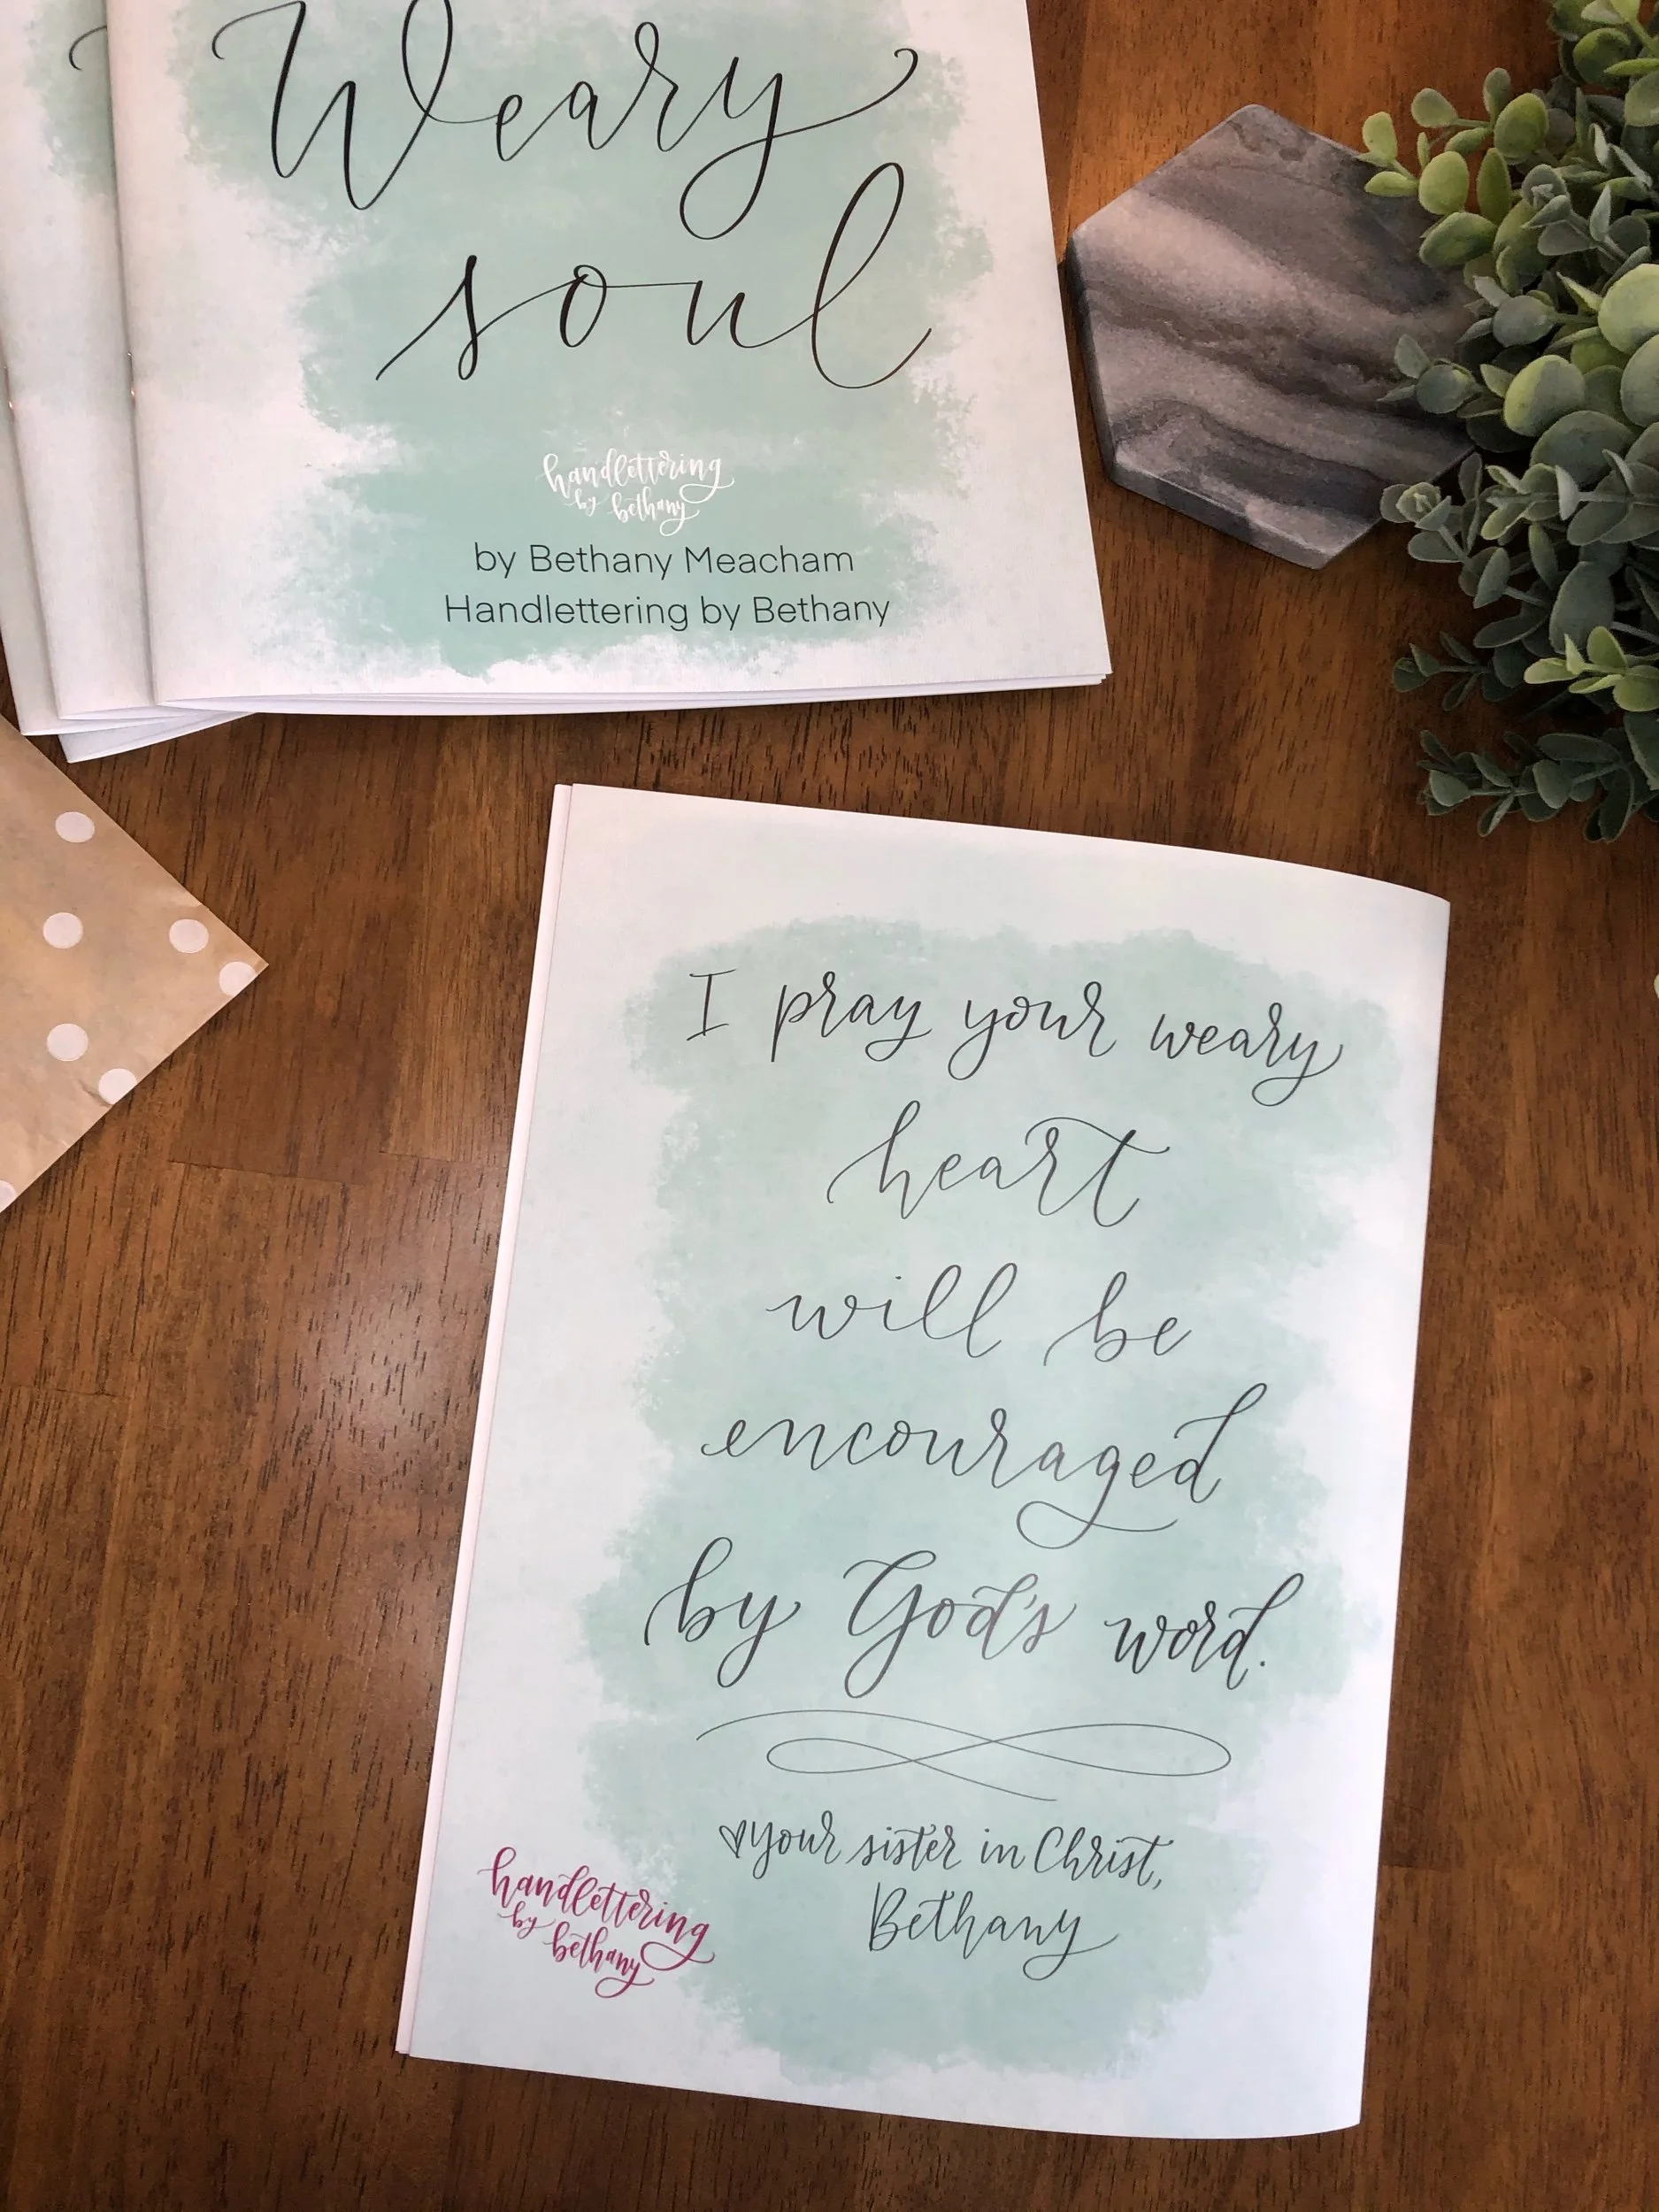 Weary
soul
handlettering
by bethany
by Bethany Meacham
Handlettering by Bethany
I pray your weary
heart
will be
encouraged
by God's word.
♥your sister in Christ,
Bethany
handlettering
by bethany